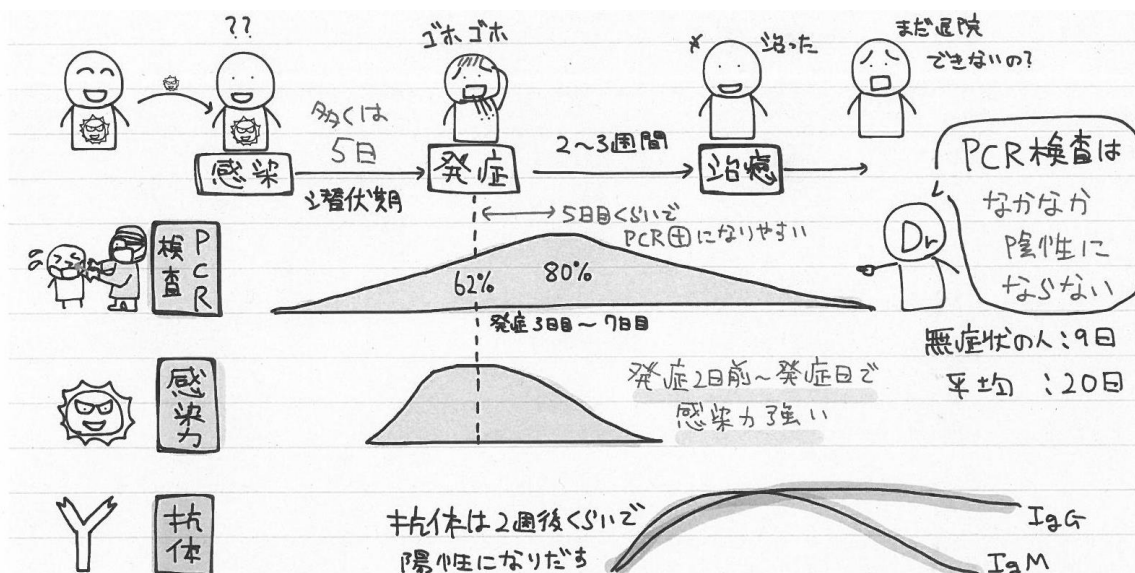 ??
ゴホゴホ
治った
まだ退院
できないの?
多くは
5日
感染
潜伏期
発症
2~3週間
治癒
PCR検査は
なかなか
陰性に
ならない
Dr
PCR
検査
5日目くらいで
PCR⊕になりやすい
62%
80%
発症3日目~7日目
無症状の人:9日
平均:20日
感染力
発症2日前~発症日で
感染力強い
抗体
抗体は2週後くらいで
陽性になりだす
IgG
IgM